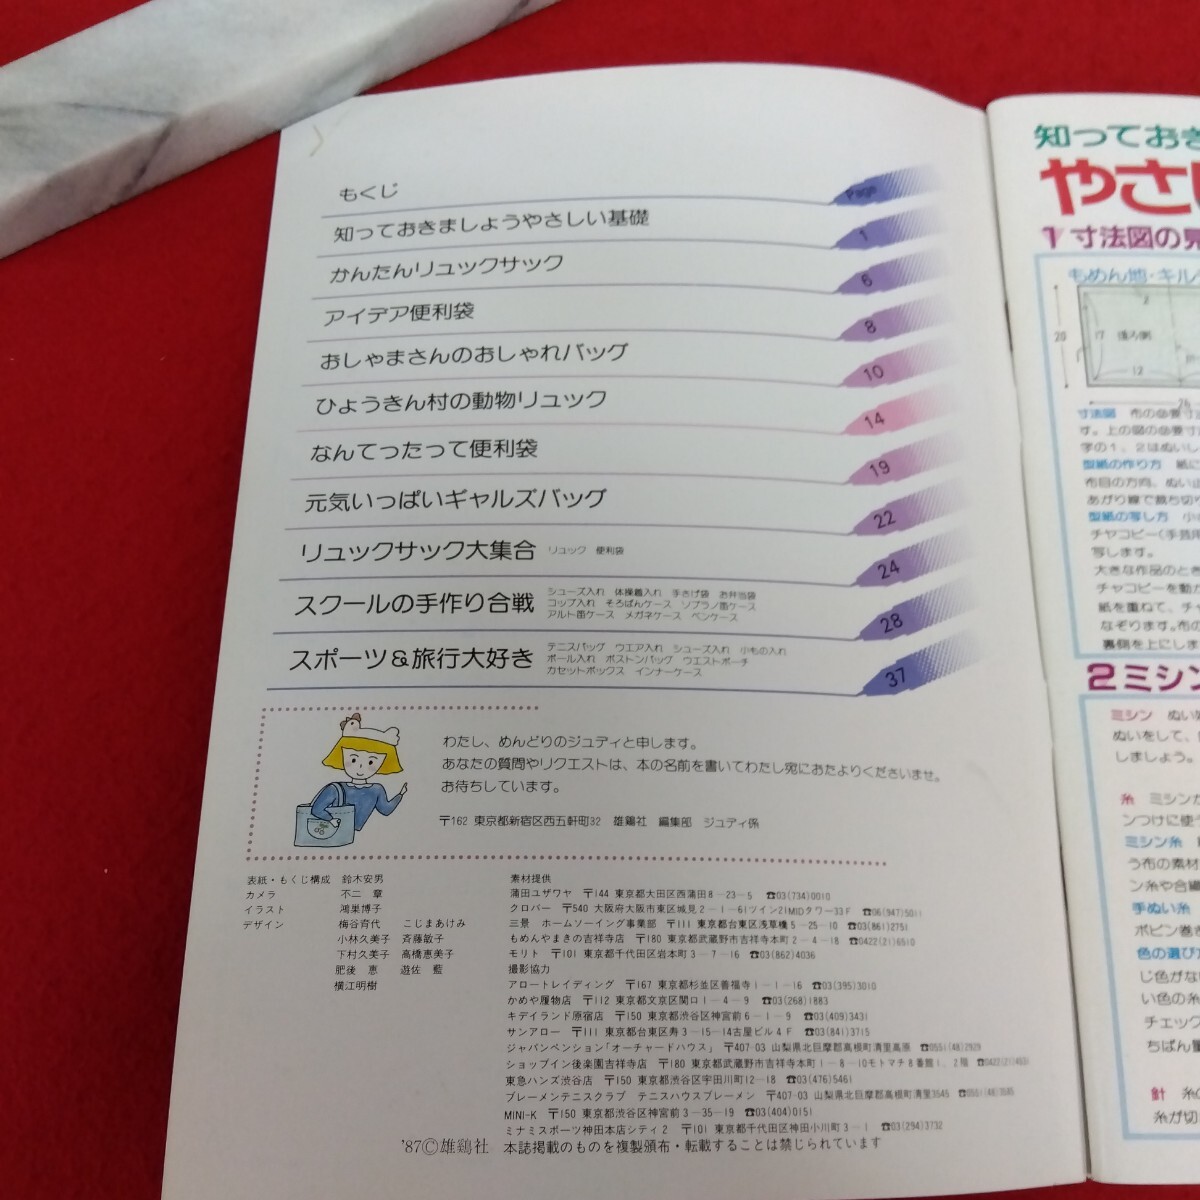 もくじ Page
知っておきましょうやさしい基礎 1
かんたんリュックサック 6
アイデア便利袋 8
おしゃまさんのおしゃれバッグ 10
ひょうきん村の動物リュック 14
なんてったって便利袋 19
元気いっぱいギャルズバッグ 22
リュックサック大集合 リュック 便利袋 24
スクールの手作り合戦 28
シューズ入れ 体操着入れ 手さげ袋 お弁当袋
コップ入れ そろばんケース ソプラノ笛ケース
アルト笛ケース メガネケース ペンケース
スポーツ&旅行大好き 37
テニスバッグ ウエア入れ シューズ入れ 小もの入れ
ボール入れ ボストンバッグ ウエストポーチ
カセットボックス インナーケース
わたし、めんどりのジュディと申します。
あなたの質問やリクエストは、本の名前を書いてわたし宛におたよりくださいませ。
お待ちしています。
〒162 東京都新宿区西五軒町32 雄鶏社 編集部 ジュディ係
表紙・もくじ構成 鈴木安男
カメラ 不二 章
イラスト 鴻巣博子
デザイン 梅谷育代 こじまあけみ
小林久美子 斉藤敏子
下村久美子 高橋恵美子
肥後 恵 遊佐 藍
横江明樹
素材提供
蒲田ユザワヤ 〒144 東京都大田区西蒲田8-23-5 ☎03(734)0010
クロバー 〒540 大阪府大阪市東区城見2-1-61ツイン21MIDタワー33F ☎06(947)5011
三景 ホームソーイング事業部 〒111 東京都台東区浅草橋5-25-10 ☎03(861)2751
もめんやまきの吉祥寺店 〒180 東京都武蔵野市吉祥寺本町2-4-18 ☎0422(21)6510
モリト 〒101 東京都千代田区岩本町3-7-16 ☎03(862)4036
撮影協力
アロートレイディング 〒167 東京都杉並区善福寺1-1-16 ☎03(395)3010
かめや履物店 〒112 東京都文京区関口1-4-9 ☎03(268)1883
キデイランド原宿店 〒150 東京都渋谷区神宮前6-1-9 ☎03(409)3431
サンアロー 〒111 東京都台東区寿3-15-14古屋ビル4F ☎03(841)3715
ジャパンペンション「オーチャードハウス」 〒407-03 山梨県北巨摩郡高根町清里高原 ☎0551(48)2929
ショップイン後楽園吉祥寺店 〒180 東京都武蔵野市吉祥寺本町1-8-10モトマチ8番館1、2階
東急ハンズ渋谷店 〒150 東京都渋谷区宇田川町12-18 ☎03(476)5461
ブレーメンテニスクラブ テニスハウスブレーメン 〒407-03 山梨県北巨摩郡高根町清里3545 ☎0551(48)3545
MINI-K 〒150 東京都渋谷区神宮前3-35-19 ☎03(404)0151
ミナミスポーツ神田本店シティ2 〒101 東京都千代田区神田小川町3-1 ☎03(294)3732
'87©雄鶏社 本誌掲載のものを複製頒布・転載することは禁じられています
知っておき
やさし
1 寸法図の見
もめん地・キル
2
20
17 後ろ側
12
26
寸法図 布の必要寸
す。上の図の必要寸
字の1、2はぬいし
型紙の作り方 紙に
布目の方向、ぬい止
あがり線で裁ち切り
型紙の写し方 小
チャコピー(手芸用
写します。
大きな作品のとき
チャコピーを動か
紙を重ねて、チャ
なぞります。布の
裏側を上にしま
2 ミシン
ミシン ぬい
ぬいをして、
しましょう。
糸 ミシンか
ンつけに使
ミシン糸
う布の素材
ン糸や合繊
手ぬい糸
ボビン巻き
色の選び方
じ色がな
い色の糸
チェック
ちばん量
針 糸の
糸が切